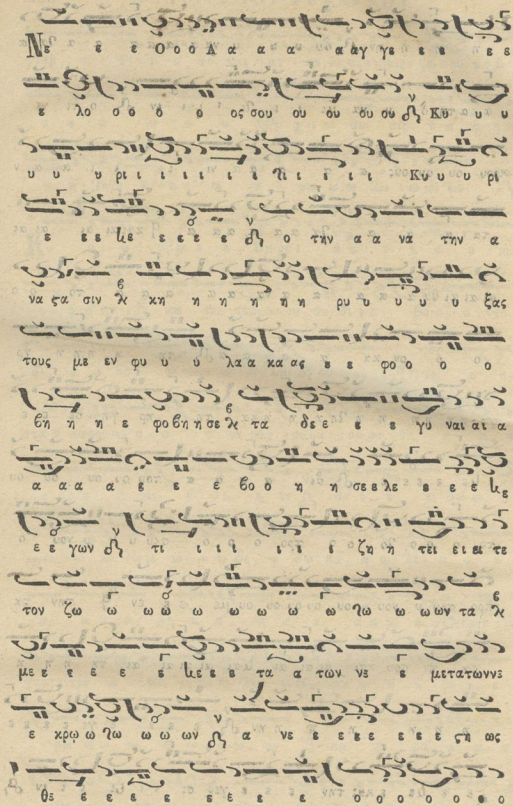 Νε ε ε Ο ο ο Α α α α α αγ γε ε ε ε ε
ε λο σο ο ο ο ος σου ου ου ου ου Κυ υ υ
υ υ υ ρι ι ι ι ι ι ι ι ι ι Κυ υ υ υ ρι
ε ε ε ε ε ε ε ο την α α να τη ν α
να ϛα σιν κη η η η η η ρυ υ υ υ υ ξας
τους με εν φυ υ υ λα α κα ας ε ε φο ο ο ο
βη η η ε φο βη η σε τα δε ε ε ε γυ ναι αι α
α α α α ε ε ε βο ο η η σε ε λε ε ε ε
ε ε γων τι ι ι ι ι ι ι ζη η τει ει ει τε
τον ζω ω ω ω ω ω ω ω ω ω ω ων τα
με ε ε ε ε ε ε ε τα α των νε ε με τα τω ν νε
ε κρω ω ω ω ω ων α νε ε ε ε ε ε ε ε ϛη ως
θε ε ε ε ε ε ε ε ε ο ο ο ο ο ο ο